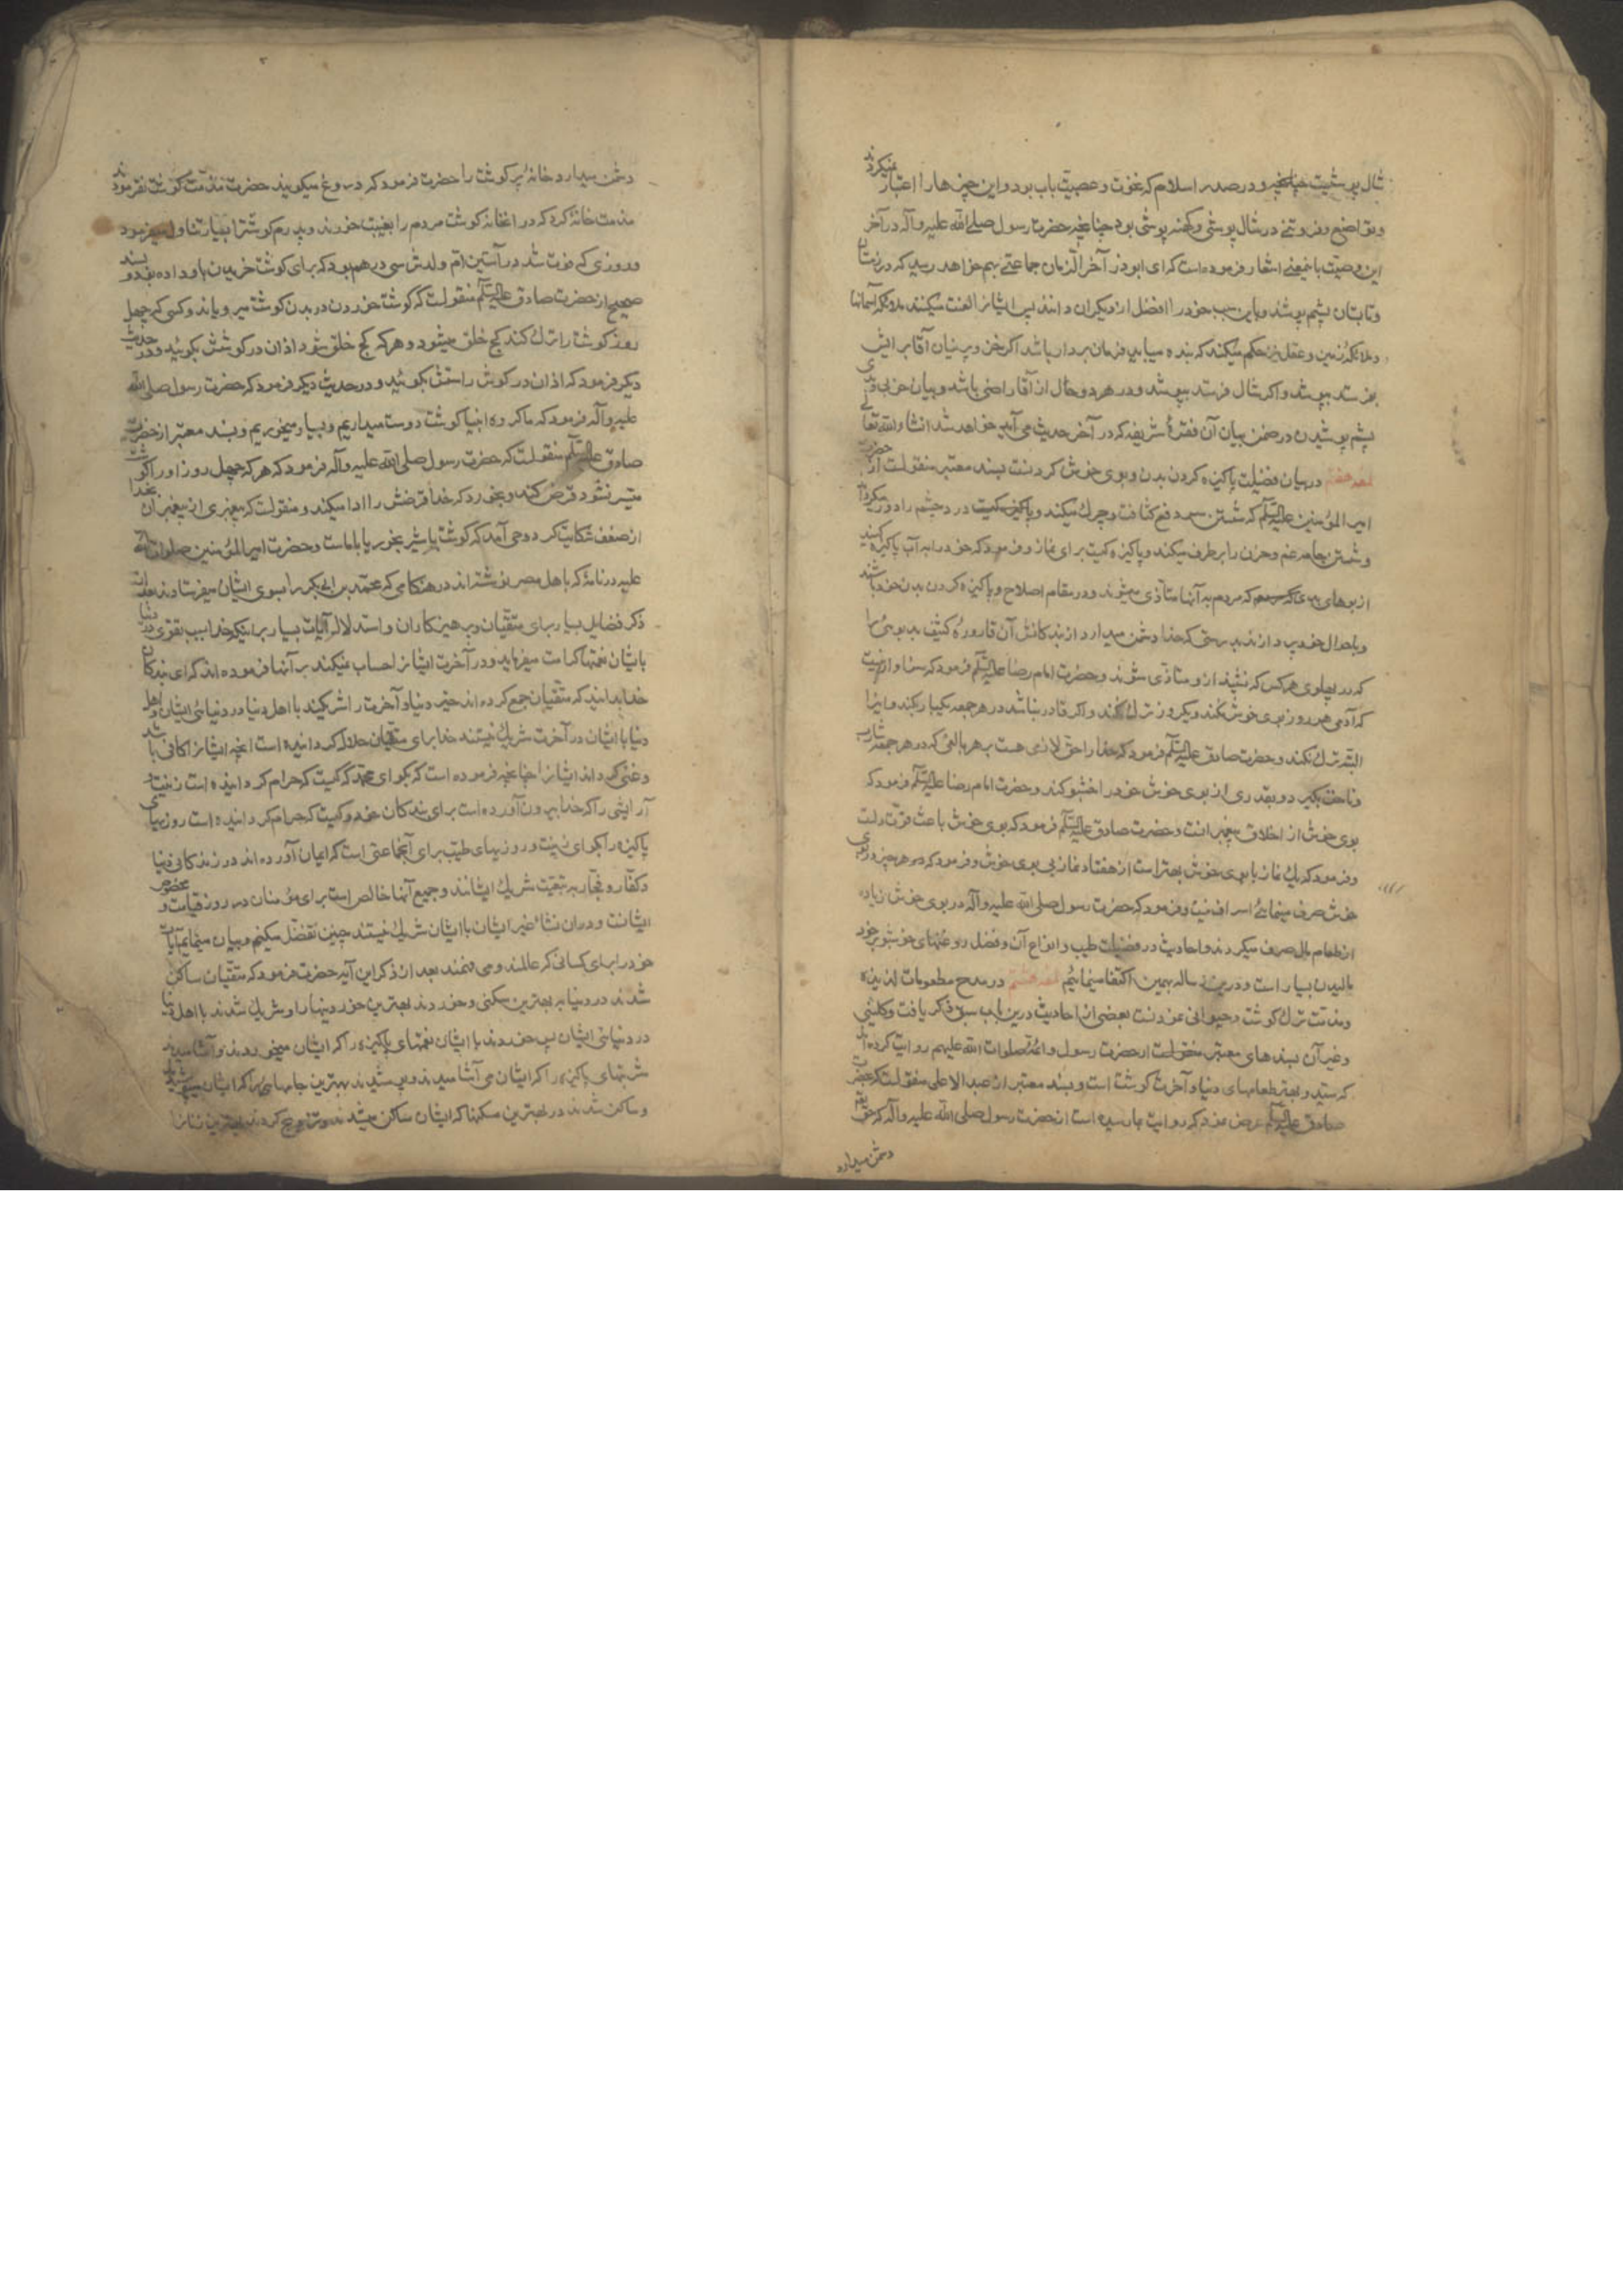 شال پوشیست چنانچه و در صدر اسلام که نخوت و عصبیت باب بود و این چیزها را اعتبار میکردند
و تواضع و فروتنی در شال پوشی و کهنه پوشی بود چنانچه حضرت رسول صلی الله علیه و آله در آخر
این وصیت باینمعنی اشعار فرموده است که ای ابوذر آخر الزمان جماعتی بهم خواهد رسید که در زمستان
و تابستان پشم پوشند و باین سبب خود را افضل از دیگران دانند پس ایشانرا لعنت میکنند ملائکه آسمانها
و ملائکه زمین و عقل نیز حکم میکند که بنده میباید فرمان بردار باشد اگر خز و پرنیان آقا برایش
بفرستد بپوشد و اگر شال فرستد بپوشد و در هر دو حال از آقا راضی باشد و بیان خوبی و بدی
پشم پوشیدن در ضمن بیان آن فقرهٔ شریفه که در آخر حدیث می آید خواهد شد انشاء الله تعالی
لمعه هفتم در بیان فضیلت پاکیزه کردن بدن و بوی خوش کردنست بسند معتبر منقولست از حضرت
امیر المؤمنین علیه السلم که شستن سر دفع کثافت و چرک میکند و درد چشم را دور میگرداند
و شستن جامه غم و حزن را برطرف میکند و پاکیزه کیست برای نماز و فرمود که خود را به آب پاکیزه کنید
از بوهای بد که مردم به آنها متأذی میشوند و در مقام اصلاح و پاکیزه کردن بدن خود باشید
و باحوال خود بپردازند بدرستی که خدا دشمن میدارد از بندکانش آن قاذورهٔ کثیف بدبوئی را
که در پهلوی هر کس که نشیند ازو متأذی شوند و حضرت امام رضا علیه السلم فرمود که سزاوار نیست
که آدمی هر روز بوی خوش نکند و یکروز ترک کند و اگر قادر نباشد در هر جمعه یکبار بکند و اینرا
البته ترک نکند و حضرت صادق علیه السلم فرمود که خدا را حق لازمی هست بر هر بالغی که در هر جمعه شارب
و ناخن بگیرد و بقدری از بوی خوش خود را خشبو کند و حضرت امام رضا علیه السلم فرمود که
بوی خوش از اخلاق پیغمبرانست و حضرت صادق علیه السلم فرمود که بوی خوش باعث قوت دلست
و فرمود که یک نماز با بوی خوش بهتر است از هفتاد نماز بی بوی خوش و فرمود که هر چیز در بوی
خوش صرف مینمائی اسراف نیست و فرمود که حضرت رسول صلی الله علیه و آله در بوی خوش زیاده
از طعام مال صرف میکردند و احادیث در فضیلت طیب و انواع آن و فضل روغنهای خوشبو بر خود
مالیدن بسیار است و درین رساله بهمین اکتفا مینمائیم لمعه هشتم در مدح مطعومات لذیذه
و مذمت ترک کوشت و حیوانی نخوردنست بعضی از احادیث درین باب سبق ذکر یافت و کلینی
و غیر آن بسندهای معتبر منقولست از حضرت رسول و ائمه صلوات الله علیهم روایت کرده‌اند
که سید و بهتر طعامهای دنیا و آخرت کوشت است و بسند معتبر از عبد الاعلی منقولست که بحضرت
صادق علیه السلم عرض نمود که روایت بما رسیده است از حضرت رسول صلی الله علیه و آله که حق تعالی
دشمن میدارد
دشمن میدارد خانهٔ پر کوشت را حضرت فرمود که دروغ میکویند حضرت مذمت کوشت نفرمودند
مذمت خانهٔ کرد که در آنخانه کوشت مردم را بغیبت خورند و پدرم کوشترا بسیار تناول میفرمود
و روزی که فوت شد در آستین ام ولدش سی درهم بود که برای کوشت خریدن باو داده بود و بسند
صحیح از حضرت صادق علیه السلم منقولست که کوشت خوردن در بدن کوشت میرویاند و کسی که چهل
روز کوشت را ترک کند کج خلق میشود و هر که کج خلق شود اذان در کوشش بکوئید و در حدیث
دیکر فرمود که اذان در کوش راستش بکوئید و در حدیث دیکر فرمود که حضرت رسول صلی الله
علیه و آله فرمود که ما کروه انبیا کوشت دوست میداریم و بسیار میخوریم و بسند معتبر از حضرت
صادق علیه السلم منقولست که حضرت رسول صلی الله علیه و آله فرمود که هر که چهل روز او را کوشت
میسر نشود قرض کند و بخورد که خدا قرضش را ادا میکند و منقولست که پیغمبری از پیغمبران بخدا
از ضعف شکایت کرد وحی آمد که کوشت با شیر بخور یا با ماست و حضرت امیر المؤمنین صلوات الله
علیه در نامهٔ که باهل مصر نوشته‌اند در هنکامی که محمد بن ابی بکر را بسوی ایشان میفرستادند بعد از
ذکر فضایل بسیار برای متقیان و پرهیزکاران و استدلال آیات بسیار بر اینکه خدا بسبب تقوی در دنیا
بایشان نعمتها کرامت میفرماید و در آخرت ایشانرا حساب نمیکند بر آنها فرموده‌اند که ای بندکان
خدا بدانید که متقیان جمع کرده‌اند خیر دنیا و آخرت را شریکند با اهل دنیا در دنیای ایشان و اهل
دنیا با ایشان در آخرت شریک نیستند خدا برای متقیان حلال کردانیده است آنچه ایشانرا کافی باشد
و غنی کرداند ایشانرا چنانچه فرموده است که بکو ای محمد که کیست که حرام کردانیده است زینت
آرایشی را که خدا بیرون آورده است برای بندکان خود و کیست که حرام کردانیده است روزیهای
پاکیزه را بکو ای زینت و روزیهای طیب برای آنجماعتی است که ایمان آورده‌اند در زندکانی دنیا
و کفار و فجار به تبعیت شریک ایشانند و جمیع آنها خالص است برای مؤمنان در روز قیامت و مخصوص
ایشانست و در آن نشأ غیر ایشان با ایشان شریک نیستند چنین تفضل میکنیم و بیان مینمایم آیات
خود را برای کسانی که عالمند و می فهمند بعد از ذکر این آیه حضرت فرمود که متقیان ساکن
شدند در دنیا به بهترین سکنی و خوردند بهترین خوردنیها را و شریک شدند با اهل دنیا
در دنیای ایشان پس خوردند با ایشان نعمتهای پاکیزه را که ایشان میخوردند و آشامیدند
شربتهای پاکیزه را که ایشان می آشامیدند و پوشیدند بهترین جامهائی را که ایشان میپوشیدند
و ساکن شدند در بهترین مسکنها که ایشان ساکن میشدند و تزویج کردند بهترین زنانرا